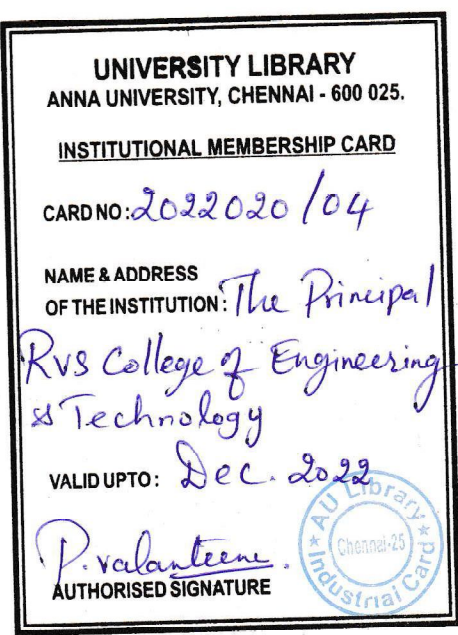 UNIVERSITY LIBRARY
ANNA UNIVERSITY, CHENNAI - 600 025.
INSTITUTIONAL MEMBERSHIP CARD
CARD NO: 2022020/04
NAME & ADDRESS
OF THE INSTITUTION: The Principal
RVS College of Engineering
& Technology
VALID UPTO: Dec. 2022
P. Valanteene.
AUTHORISED SIGNATURE
AU Library
Chennai-25
Industrial Card